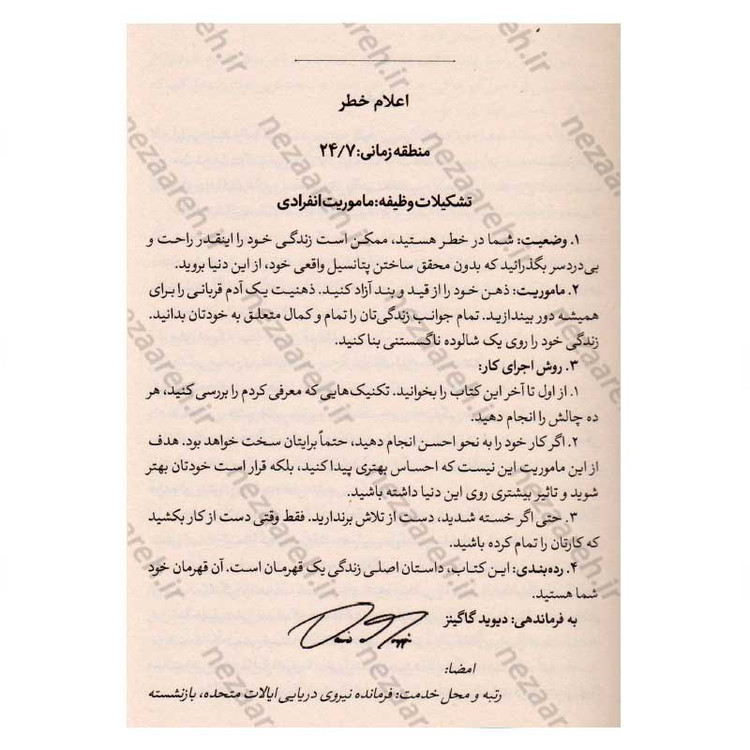 اعلام خطر
منطقه زمانی: ۲۴/۷
تشکیلات وظیفه: ماموریت انفرادی
۱. وضعیت: شما در خطر هستید، ممکن است زندگی خود را اینقدر راحت و
بی‌دردسر بگذرانید که بدون محقق ساختن پتانسیل واقعی خود، از این دنیا بروید.
۲. ماموریت: ذهن خود را از قید و بند آزاد کنید. ذهنیت یک آدم قربانی را برای
همیشه دور بیندازید. تمام جوانب زندگی‌تان را تمام و کمال متعلق به خودتان بدانید.
زندگی خود را روی یک شالوده ناگسستنی بنا کنید.
۳. روش اجرای کار:
۱. از اول تا آخر این کتاب را بخوانید. تکنیک‌هایی که معرفی کردم را بررسی کنید، هر
ده چالش را انجام دهید.
۲. اگر کار خود را به نحو احسن انجام دهید، حتماً برایتان سخت خواهد بود. هدف
از این ماموریت این نیست که احساس بهتری پیدا کنید، بلکه قرار است خودتان بهتر
شوید و تاثیر بیشتری روی این دنیا داشته باشید.
۳. حتی اگر خسته شدید، دست از تلاش برندارید. فقط وقتی دست از کار بکشید
که کارتان را تمام کرده باشید.
۴. رده‌بندی: این کتاب، داستان اصلی زندگی یک قهرمان است. آن قهرمان خود
شما هستید.
به فرماندهی: دیوید گاگینز
امضا:
رتبه و محل خدمت: فرمانده نیروی دریایی ایالات متحده، بازنشسته
nezaareh.ir